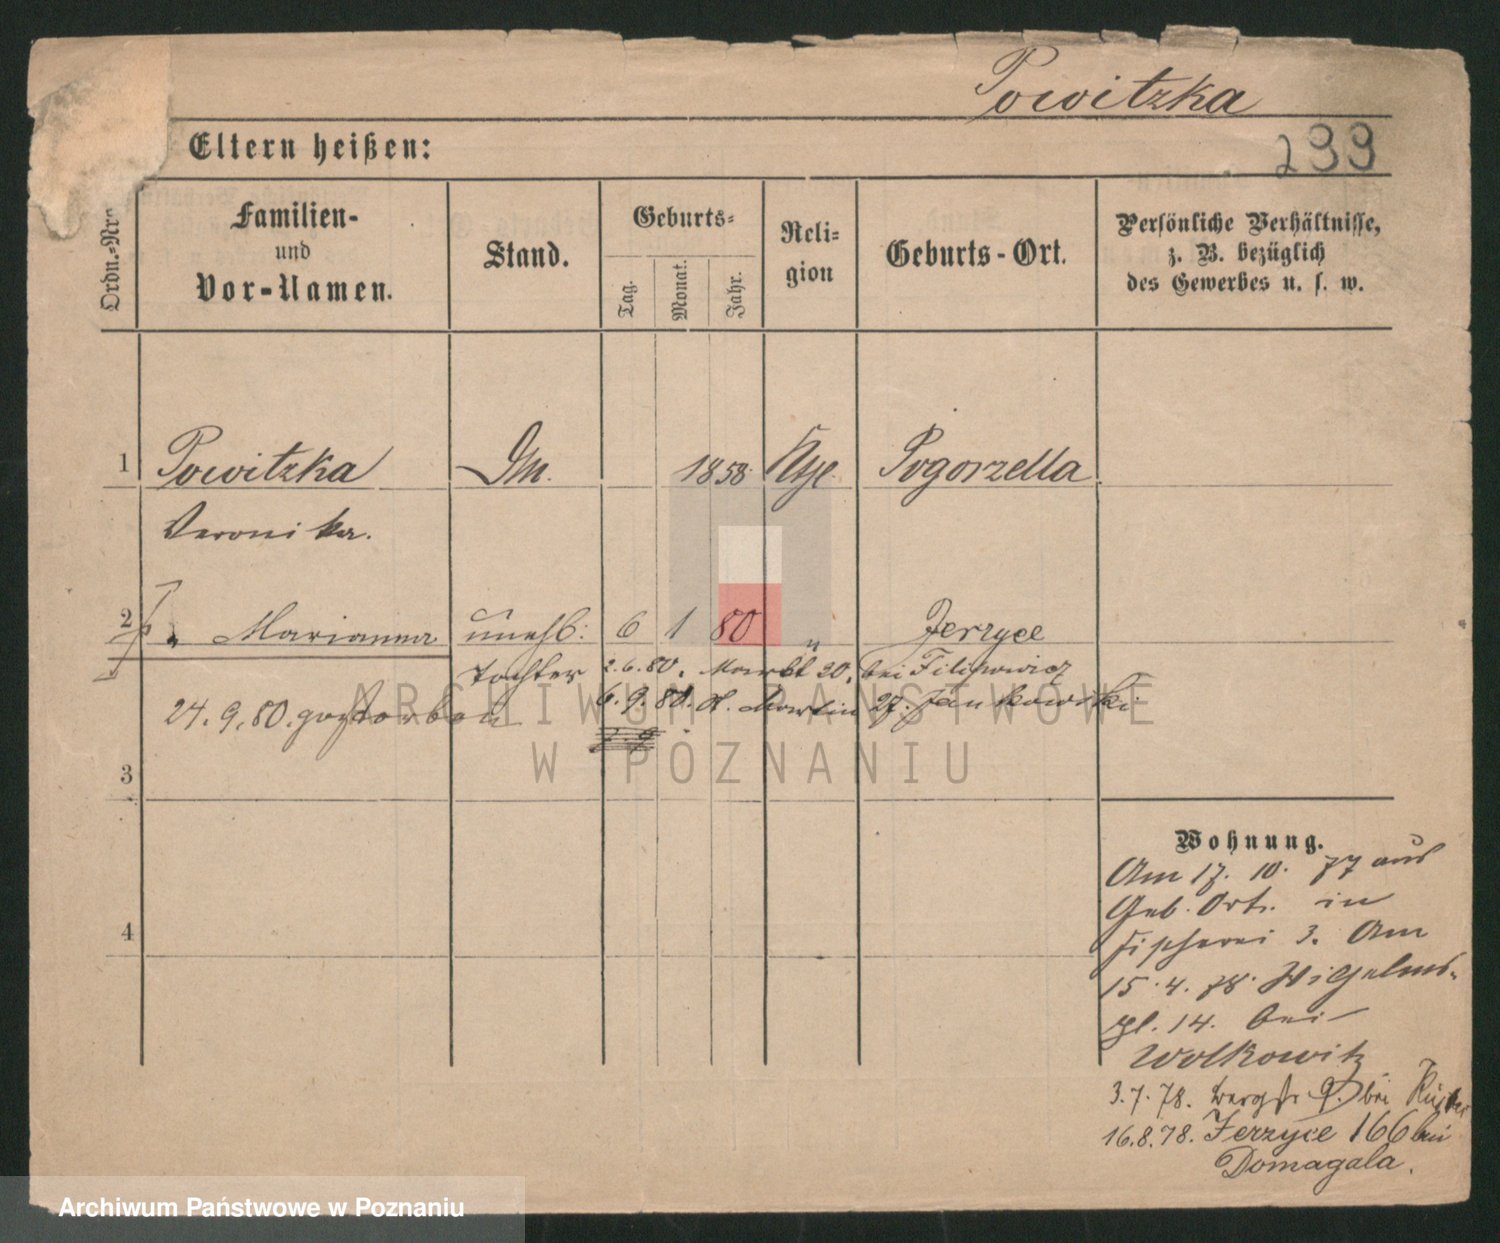 Powitzka
299
Eltern heißen:
Ordn.-Nr.
Familien-
und
Vor-Namen.
Stand.
Geburts-
Tag.
Monat.
Jahr.
Reli-
gion
Geburts-Ort.
Persönliche Verhältnisse,
z. B. bezüglich
des Gewerbes u. s. w.
1 Powitzka 1858. Pogorzella
Veronika.
2 " Marianna unehl: 6 1 80 " Jerzyce
Tochter 2.6.80. Markt 30. bei Filipowicz
6.9.80. St. Martin 27. Jankowski
24.9.80. gestorben
3
4
Wohnung.
Am 17. 10. 77 aus
Geb. Ort. in
Fischerei 3. Am
15.4.78. Wilhelms-
pl. 14. bei
Wolkowitz
3.7.78. Bergstr. 9. bei
16.8.78. Jerzyce 166 bei
Domagala.
ARCHIWUM PAŃSTWOWE
W POZNANIU
Archiwum Państwowe w Poznaniu